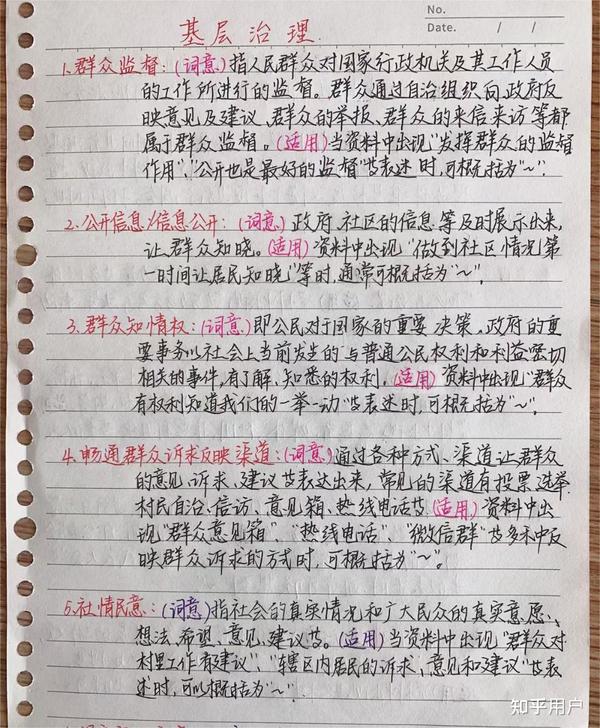 No.
Date. / /
基层治理
1.群众监督:(词意)指人民群众对国家行政机关及其工作人员
的工作所进行的监督。群众通过自治组织向政府反
映意见及建议、群众的举报、群众的来信来访等都
属于群众监督。(适用)当资料中出现"发挥群众的监督
作用"、"公开也是最好的监督"等表述时,可概括为"~".
2.公开信息/信息公开:(词意)政府、社区的信息等及时展示出来,
让群众知晓。(适用)资料中出现"做到社区情况第
一时间让居民知晓"等时,通常可概括为"~".
3.群众知情权:(词意)即公民对于国家的重要决策、政府的重
要事务以社会上当前发生的与普通公民权利和利益密切
相关的事件,有了解、知悉的权利.(适用)资料中出现"群众
有权利知道我们的一举一动"等表述时,可概括为"~".
4.畅通群众诉求反映渠道:(词意)通过各种方式、渠道让群众
的意见、诉求、建议等表达出来,常见的渠道有投票选举、
村民自治、信访、意见箱、热线电话等(适用)资料中出
现"群众意见箱"、"热线电话"、"微信群"等多种反
映群众诉求的方式时,可概括为"~"。
5.社情民意:(词意)指社会的真实情况和广大民众的真实意愿、
想法、希望、意见、建议等。(适用)当资料中出现"群众对
村里工作有建议"、"辖区内居民的诉求、意见和建议"等表
述时,可以概括为"~".
知乎用户